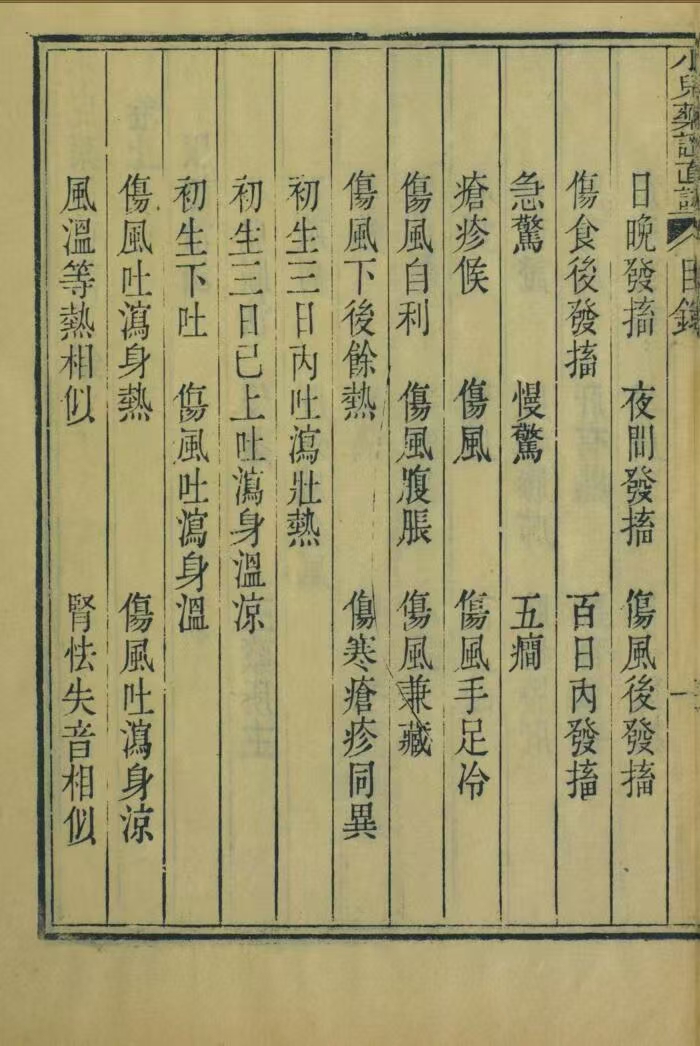 小兒藥證直訣 目錄 一
日晚發搐 夜間發搐 傷風後發搐
傷食後發搐 百日內發搐
急驚 慢驚 五癇
瘡疹候 傷風 傷風手足冷
傷風自利 傷風腹脹 傷風兼藏
傷風下後餘熱 傷寒瘡疹同異
初生三日內吐瀉壯熱
初生三日已上吐瀉身溫涼
初生下吐 傷風吐瀉身溫
傷風吐瀉身熱 傷風吐瀉身涼
風溫等熱相似 腎怯失音相似